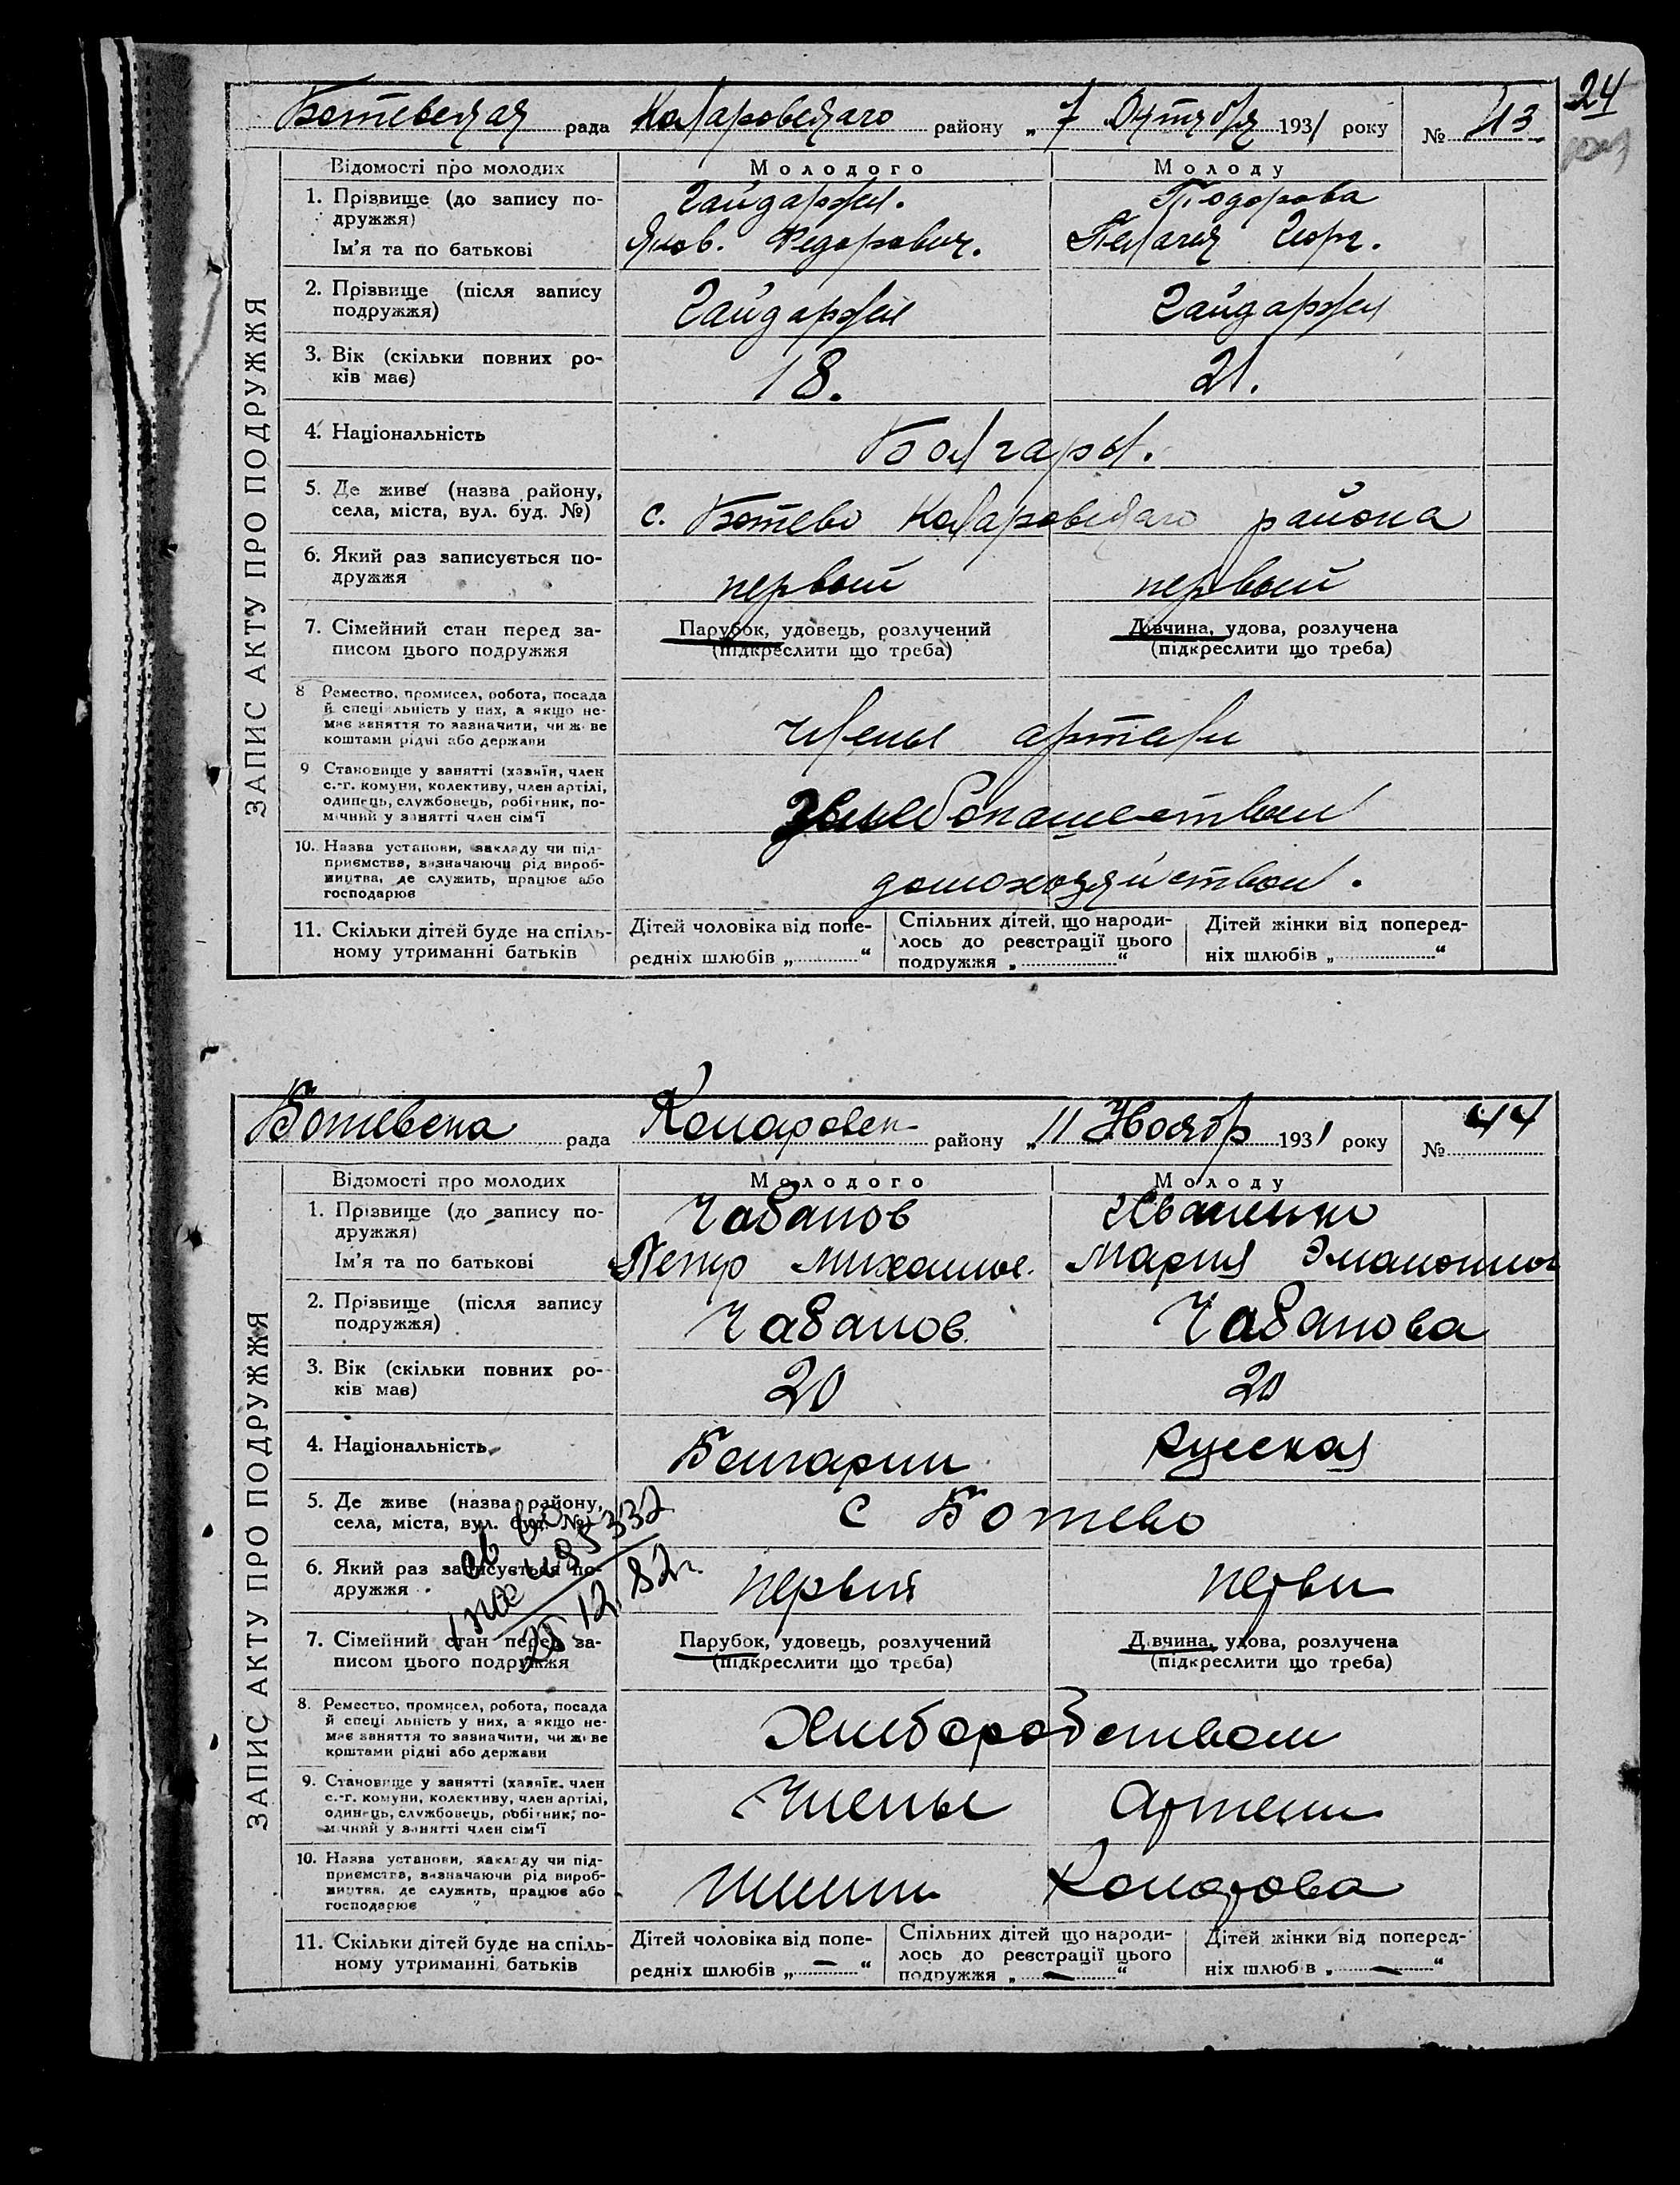 24
Ботевская рада Коларовскаго району „ 7 Октября 1931 року № 43
ЗАПИС АКТУ ПРО ПОДРУЖЖЯ
Відомості про молодих Молодого Молоду
1. Прізвище (до запису по- Гайдаржи. Тодорова
дружжя)
Ім'я та по батькові Яков. Федорович. Пелагея Георг.
2. Прізвище (після запису
подружжя) Гайдаржи Гайдаржи
3. Вік (скільки повних ро-
ків має) 18. 21.
4. Національність Болгары.
5. Де живе (назва району,
села, міста, вул. буд. №) с. Ботево Коларовскаго района
6. Який раз записується по-
дружжя первый первый
7. Сімейний стан перед за- Парубок, удовець, розлучений Дівчина, удова, розлучена
писом цього подружжя (підкреслити що треба) (підкреслити що треба)
8 Ремество, промисел, робота, посада
й спеціальність у них, а якщо не-
має заняття то зазначити, чи живе
коштами рідні або держави члены артели
9 Становище у занятті (хазяїн, член
с.-г. комуни, колективу, член артілі,
одинець, службовець, робітник, по-
мічний у занятті член сім'ї хлебопашеством
10. Назва установи, закладу чи під-
приємства, визначаючи рід вироб-
ництва, де служить, працює або
господарює домохозяйством.
11. Скільки дітей буде на спіль- Дітей чоловіка від попе- Спільних дітей, що народи- Дітей жінки від поперед-
ному утриманні батьків редніх шлюбів „ “ лось до реєстрації цього ніх шлюбів „ “
подружжя „ “
Ботевска рада Коларовск району „ 11 Ноябр 1931 року № 44
ЗАПИС АКТУ ПРО ПОДРУЖЖЯ
Відомості про молодих Молодого Молоду
1. Прізвище (до запису по- Чабанов Иваненко
дружжя)
Ім'я та по батькові Петр Михайлов. Мария
2. Прізвище (після запису
подружжя) Чабанов. Чабанова
3. Вік (скільки повних ро-
ків має) 20 20
4. Національність Болгарин Русская
5. Де живе (назва району,
села, міста, вул. буд. №) с Ботево
6. Який раз записується по-
дружжя первий перви
7. Сімейний стан перед за- Парубок, удовець, розлучений Дівчина, удова, розлучена
писом цього подружжя (підкреслити що треба) (підкреслити що треба)
8. Ремество, промисел, робота, посада
й спеціальність у них, а якщо не-
має заняття то зазначити, чи живе
коштами рідні або держави Хлиборобством
9. Становище у занятті (хазяїн, член
с.-г. комуни, колективу, член артілі,
одинець, службовець, робітник, по-
мічний у занятті член сім'ї Члены Артели
10. Назва установи, закладу чи під-
приємства, визначаючи рід вироб-
ництва, де служить, працює або
господарює Коларова
11. Скільки дітей буде на спіль- Дітей чоловіка від попе- Спільних дітей що народи- Дітей жінки від поперед-
ному утриманні батьків редніх шлюбів „ — “ лось до реєстрації цього ніх шлюбів „ — “
подружжя „ — “